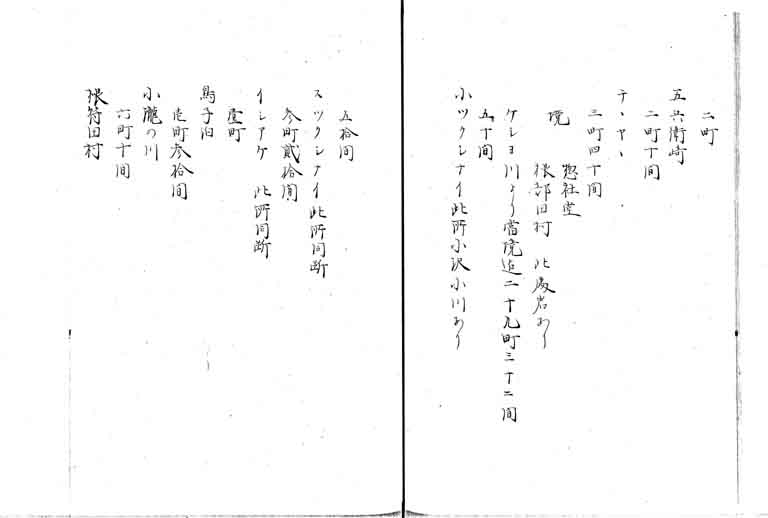 二町
五兵衛崎
二町十間
チヽヤヽ
三町四十間
惣社堂
境 根部田村 此处岩あり
ケレヨ川より當境迄二十九町三十二間
五十間
小ツクシナイ 此所小沢小川あり
五拾間
スツクシナイ 此所同断
参町貳拾間
イシアケ 此所同断
壹町
馬子泊
壱町参拾間
小瀧の川
六町十間
根符田村